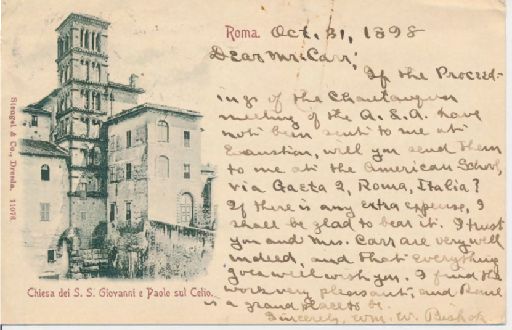 Roma. Oct. 31, 1898
Dear Mr. Carr;
If the Proceed-
ings of the Chautauqua
meeting of the A. L. A. have
not been sent to me at
Evanston, will you send them
to me at the American School,
via Gaeta 2, Roma, Italia?
If there is any extra expense, I
shall be glad to bear it. I trust
you and Mrs. Carr are very well
indeed, and that everything
goes well with you. I find the
work very pleasant, and Rome
is a grand place to be.
Sincerely, Wm. W. Bishop
Chiesa dei S. S. Giovanni e Paolo sul Celio.
Stengel & Co., Dresda. 11076